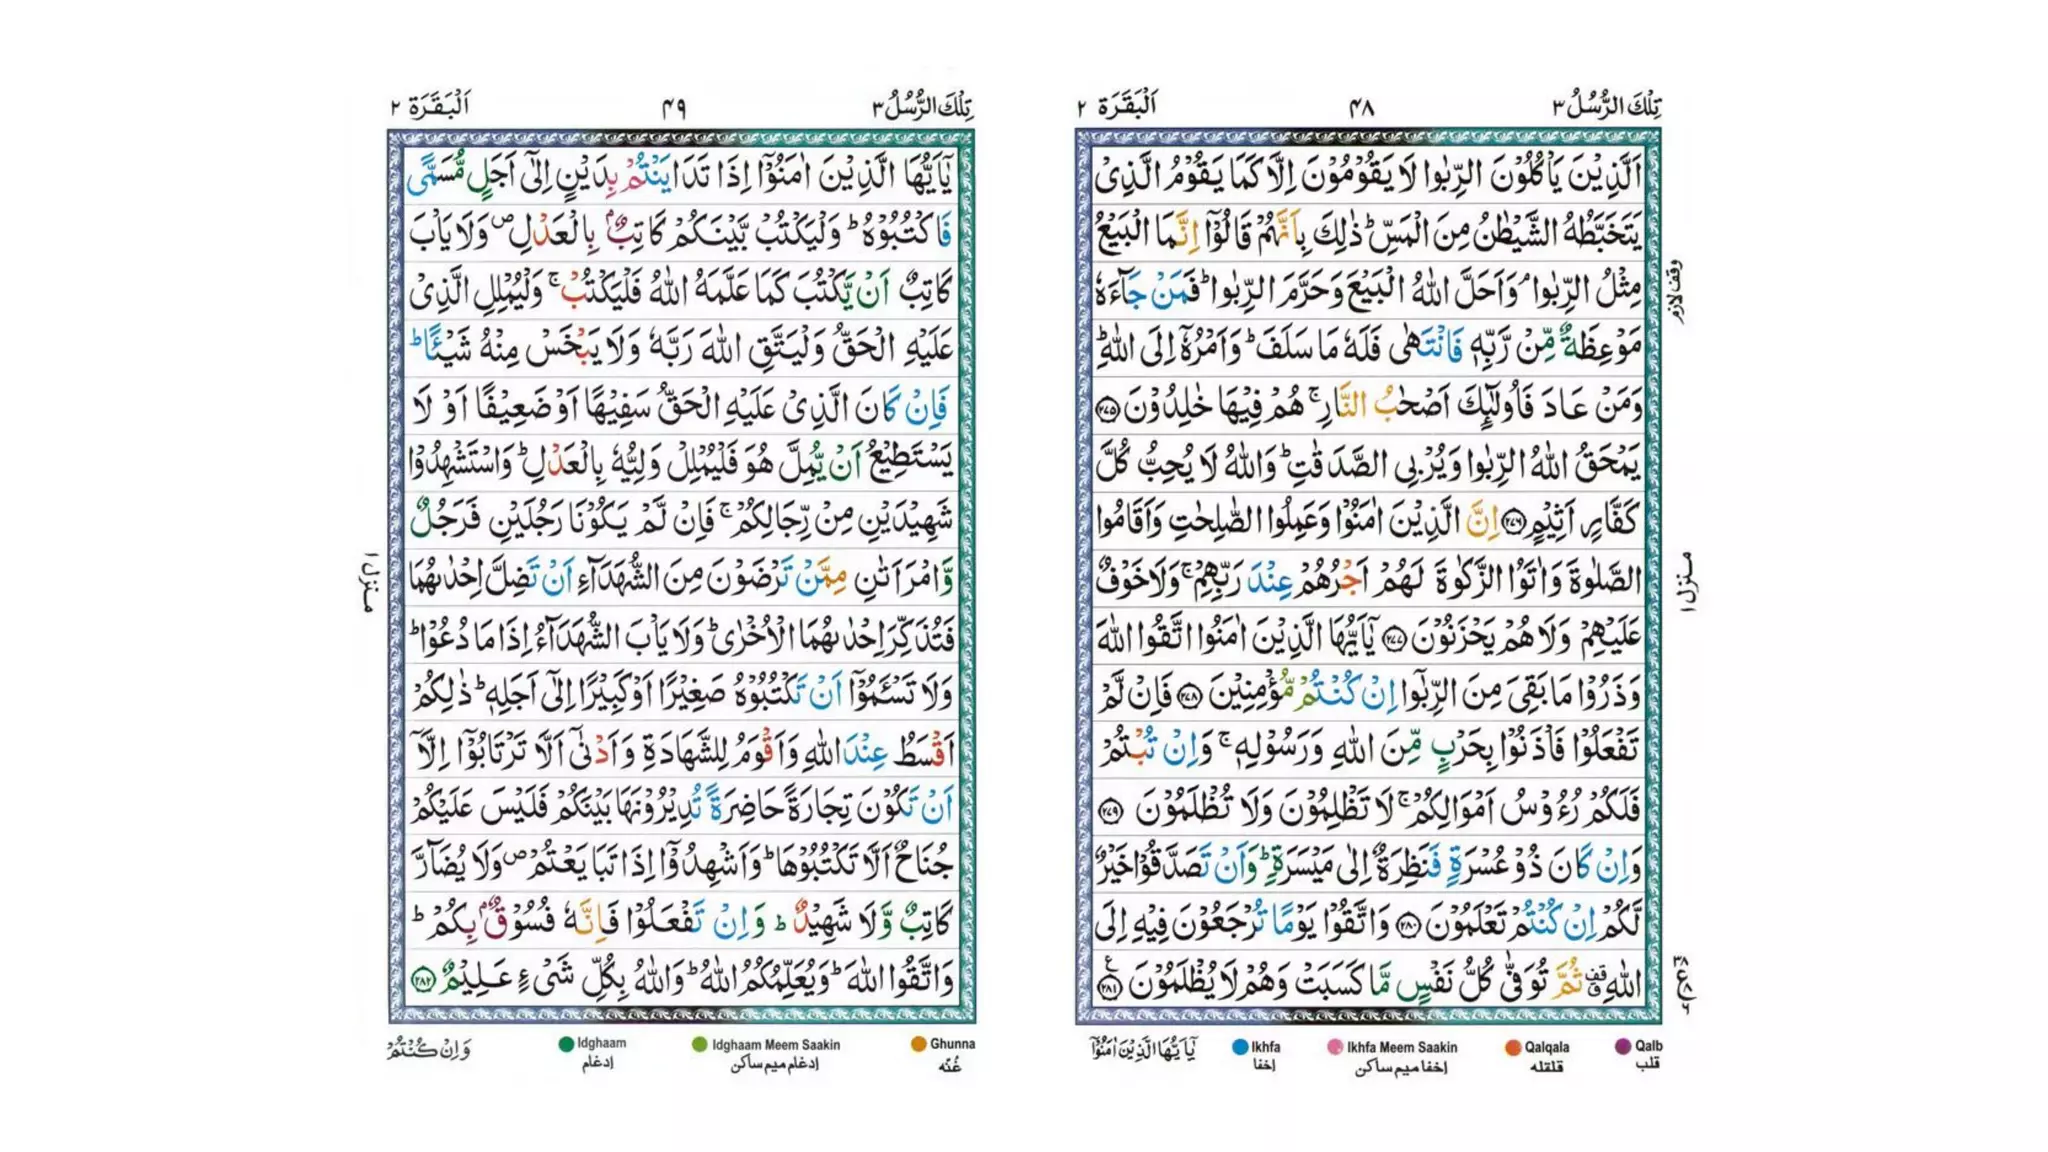 تِلْكَ الرُّسُلُ ٣ ۴۸ اَلْبَقَرَة ٢
اَلَّذِيْنَ يَاْكُلُوْنَ الرِّبٰوا لَا يَقُوْمُوْنَ اِلَّا كَمَا يَقُوْمُ الَّذِىْ
يَتَخَبَّطُهُ الشَّيْطٰنُ مِنَ الْمَسِّ ؕ ذٰلِكَ بِاَنَّهُمْ قَالُوْۤا اِنَّمَا الْبَيْعُ
مِثْلُ الرِّبٰوا ۘ وَاَحَلَّ اللّٰهُ الْبَيْعَ وَحَرَّمَ الرِّبٰوا ؕ فَمَنْ جَآءَهٗ
وقف لازم
مَوْعِظَةٌ مِّنْ رَّبِّهٖ فَانْتَهٰى فَلَهٗ مَا سَلَفَ ؕ وَاَمْرُهٗۤ اِلَى اللّٰهِ ؕ
وَمَنْ عَادَ فَاُولٰٓئِكَ اَصْحٰبُ النَّارِ ۚ هُمْ فِيْهَا خٰلِدُوْنَ ﴿۲۷۵﴾
يَمْحَقُ اللّٰهُ الرِّبٰوا وَيُرْبِى الصَّدَقٰتِ ؕ وَاللّٰهُ لَا يُحِبُّ كُلَّ
كَفَّارٍ اَثِيْمٍ ﴿۲۷۶﴾ اِنَّ الَّذِيْنَ اٰمَنُوْا وَعَمِلُوا الصّٰلِحٰتِ وَاَقَامُوا
الصَّلٰوةَ وَاٰتَوُا الزَّكٰوةَ لَهُمْ اَجْرُهُمْ عِنْدَ رَبِّهِمْ ۚ وَلَا خَوْفٌ
منزل ١
عَلَيْهِمْ وَلَا هُمْ يَحْزَنُوْنَ ﴿۲۷۷﴾ يٰۤاَيُّهَا الَّذِيْنَ اٰمَنُوا اتَّقُوا اللّٰهَ
وَذَرُوْا مَا بَقِىَ مِنَ الرِّبٰۤوا اِنْ كُنْتُمْ مُّؤْمِنِيْنَ ﴿۲۷۸﴾ فَاِنْ لَّمْ
تَفْعَلُوْا فَاْذَنُوْا بِحَرْبٍ مِّنَ اللّٰهِ وَرَسُوْلِهٖ ۚ وَاِنْ تُبْتُمْ
فَلَكُمْ رُءُوْسُ اَمْوَالِكُمْ ۚ لَا تَظْلِمُوْنَ وَلَا تُظْلَمُوْنَ ﴿۲۷۹﴾
وَاِنْ كَانَ ذُوْ عُسْرَةٍ فَنَظِرَةٌ اِلٰى مَيْسَرَةٍ ؕ وَاَنْ تَصَدَّقُوْا خَيْرٌ
لَّكُمْ اِنْ كُنْتُمْ تَعْلَمُوْنَ ﴿۲۸۰﴾ وَاتَّقُوْا يَوْمًا تُرْجَعُوْنَ فِيْهِ اِلَى
اللّٰهِ قف ثُمَّ تُوَفّٰى كُلُّ نَفْسٍ مَّا كَسَبَتْ وَهُمْ لَا يُظْلَمُوْنَ ﴿۲۸۱﴾ ع
٣٨ ع ٨ ٦
Qalb قلب Qalqala قلقله Ikhfa Meem Saakin اخفا میم ساکن Ikhfa اخفا يٰۤاَيُّهَا الَّذِيْنَ اٰمَنُوْۤا
تِلْكَ الرُّسُلُ ٣ ۴۹ اَلْبَقَرَة ٢
يٰۤاَيُّهَا الَّذِيْنَ اٰمَنُوْۤا اِذَا تَدَايَنْتُمْ بِدَيْنٍ اِلٰۤى اَجَلٍ مُّسَمًّى
فَاكْتُبُوْهُ ؕ وَلْيَكْتُبْ بَّيْنَكُمْ كَاتِبٌۢ بِالْعَدْلِ ۪ وَلَا يَاْبَ
كَاتِبٌ اَنْ يَّكْتُبَ كَمَا عَلَّمَهُ اللّٰهُ فَلْيَكْتُبْ ۚ وَلْيُمْلِلِ الَّذِىْ
عَلَيْهِ الْحَقُّ وَلْيَتَّقِ اللّٰهَ رَبَّهٗ وَلَا يَبْخَسْ مِنْهُ شَيْـًٔا ؕ
فَاِنْ كَانَ الَّذِىْ عَلَيْهِ الْحَقُّ سَفِيْهًا اَوْ ضَعِيْفًا اَوْ لَا
يَسْتَطِيْعُ اَنْ يُّمِلَّ هُوَ فَلْيُمْلِلْ وَلِيُّهٗ بِالْعَدْلِ ؕ وَاسْتَشْهِدُوْا
شَهِيْدَيْنِ مِنْ رِّجَالِكُمْ ۚ فَاِنْ لَّمْ يَكُوْنَا رَجُلَيْنِ فَرَجُلٌ
وَّامْرَاَتٰنِ مِمَّنْ تَرْضَوْنَ مِنَ الشُّهَدَآءِ اَنْ تَضِلَّ اِحْدٰٮهُمَا
منزل ١
فَتُذَكِّرَ اِحْدٰٮهُمَا الْاُخْرٰى ؕ وَلَا يَاْبَ الشُّهَدَآءُ اِذَا مَا دُعُوْا ؕ
وَلَا تَسْـَٔمُوْۤا اَنْ تَكْتُبُوْهُ صَغِيْرًا اَوْ كَبِيْرًا اِلٰۤى اَجَلِهٖ ؕ ذٰلِكُمْ
اَقْسَطُ عِنْدَ اللّٰهِ وَاَقْوَمُ لِلشَّهَادَةِ وَاَدْنٰۤى اَلَّا تَرْتَابُوْۤا اِلَّاۤ
اَنْ تَكُوْنَ تِجَارَةً حَاضِرَةً تُدِيْرُوْنَهَا بَيْنَكُمْ فَلَيْسَ عَلَيْكُمْ
جُنَاحٌ اَلَّا تَكْتُبُوْهَا ؕ وَاَشْهِدُوْۤا اِذَا تَبَايَعْتُمْ ۪ وَلَا يُضَآرَّ
كَاتِبٌ وَّلَا شَهِيْدٌ ؕ وَاِنْ تَفْعَلُوْا فَاِنَّهٗ فُسُوْقٌۢ بِكُمْ ؕ
وَاتَّقُوا اللّٰهَ ؕ وَيُعَلِّمُكُمُ اللّٰهُ ؕ وَاللّٰهُ بِكُلِّ شَىْءٍ عَلِيْمٌ ﴿۲۸۲﴾
Ghunna غُنّه Idghaam Meem Saakin ادغام میم ساکن Idghaam ادغام وَاِنْ كُنْتُمْ